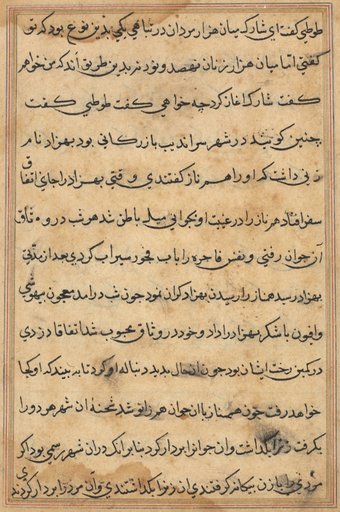 طوطی کفت ای شارک میان هزار مردان در تباهی یکی بدین نوع بود که تو
کفتی اما میان هزار زنان نهصد و نود نه بدین طریق اند که من خواهم
کفت شارک اغاز کرد چه خواهی کفت طوطی کفت
چنین کویند در شهر سراندیب بازرکانی بود بهزاد نام
زنی داشت که او را همناز کفتندی و وقتی بهزاد را جای اتفاق
سفر افتاد همناز را در غیبت او بجوانی میلی باطن شد هر شب در وثاق
آن جوان رفتی و نفس فاجره را باب فجور سیراب کردی بعد از مدتی
بهزاد رسید همناز را رسیدن بهزاد کران نمود چون شب درامد معجون بیهوشی
وافیون با شکر بهزاد را داد و خود در وثاق محبوب شد اتفاقا دزدی
در کمین رخت ایشان بود چون ان حال بدید دنباله او کرد تا به بیند که او کجا
خواهد رفت چون همناز با ان جوان هم زانو شد شحنه ان شهر هر دو را
بکرفت زن را بکذاشت وان جوان را بر دار کرد بنا بر انک در ان شهر رسمی بود اکر
مردی را با زن بیکانه کرفتندی ان زن را بکذاشتندی وآن مرد را بر دار کردندی